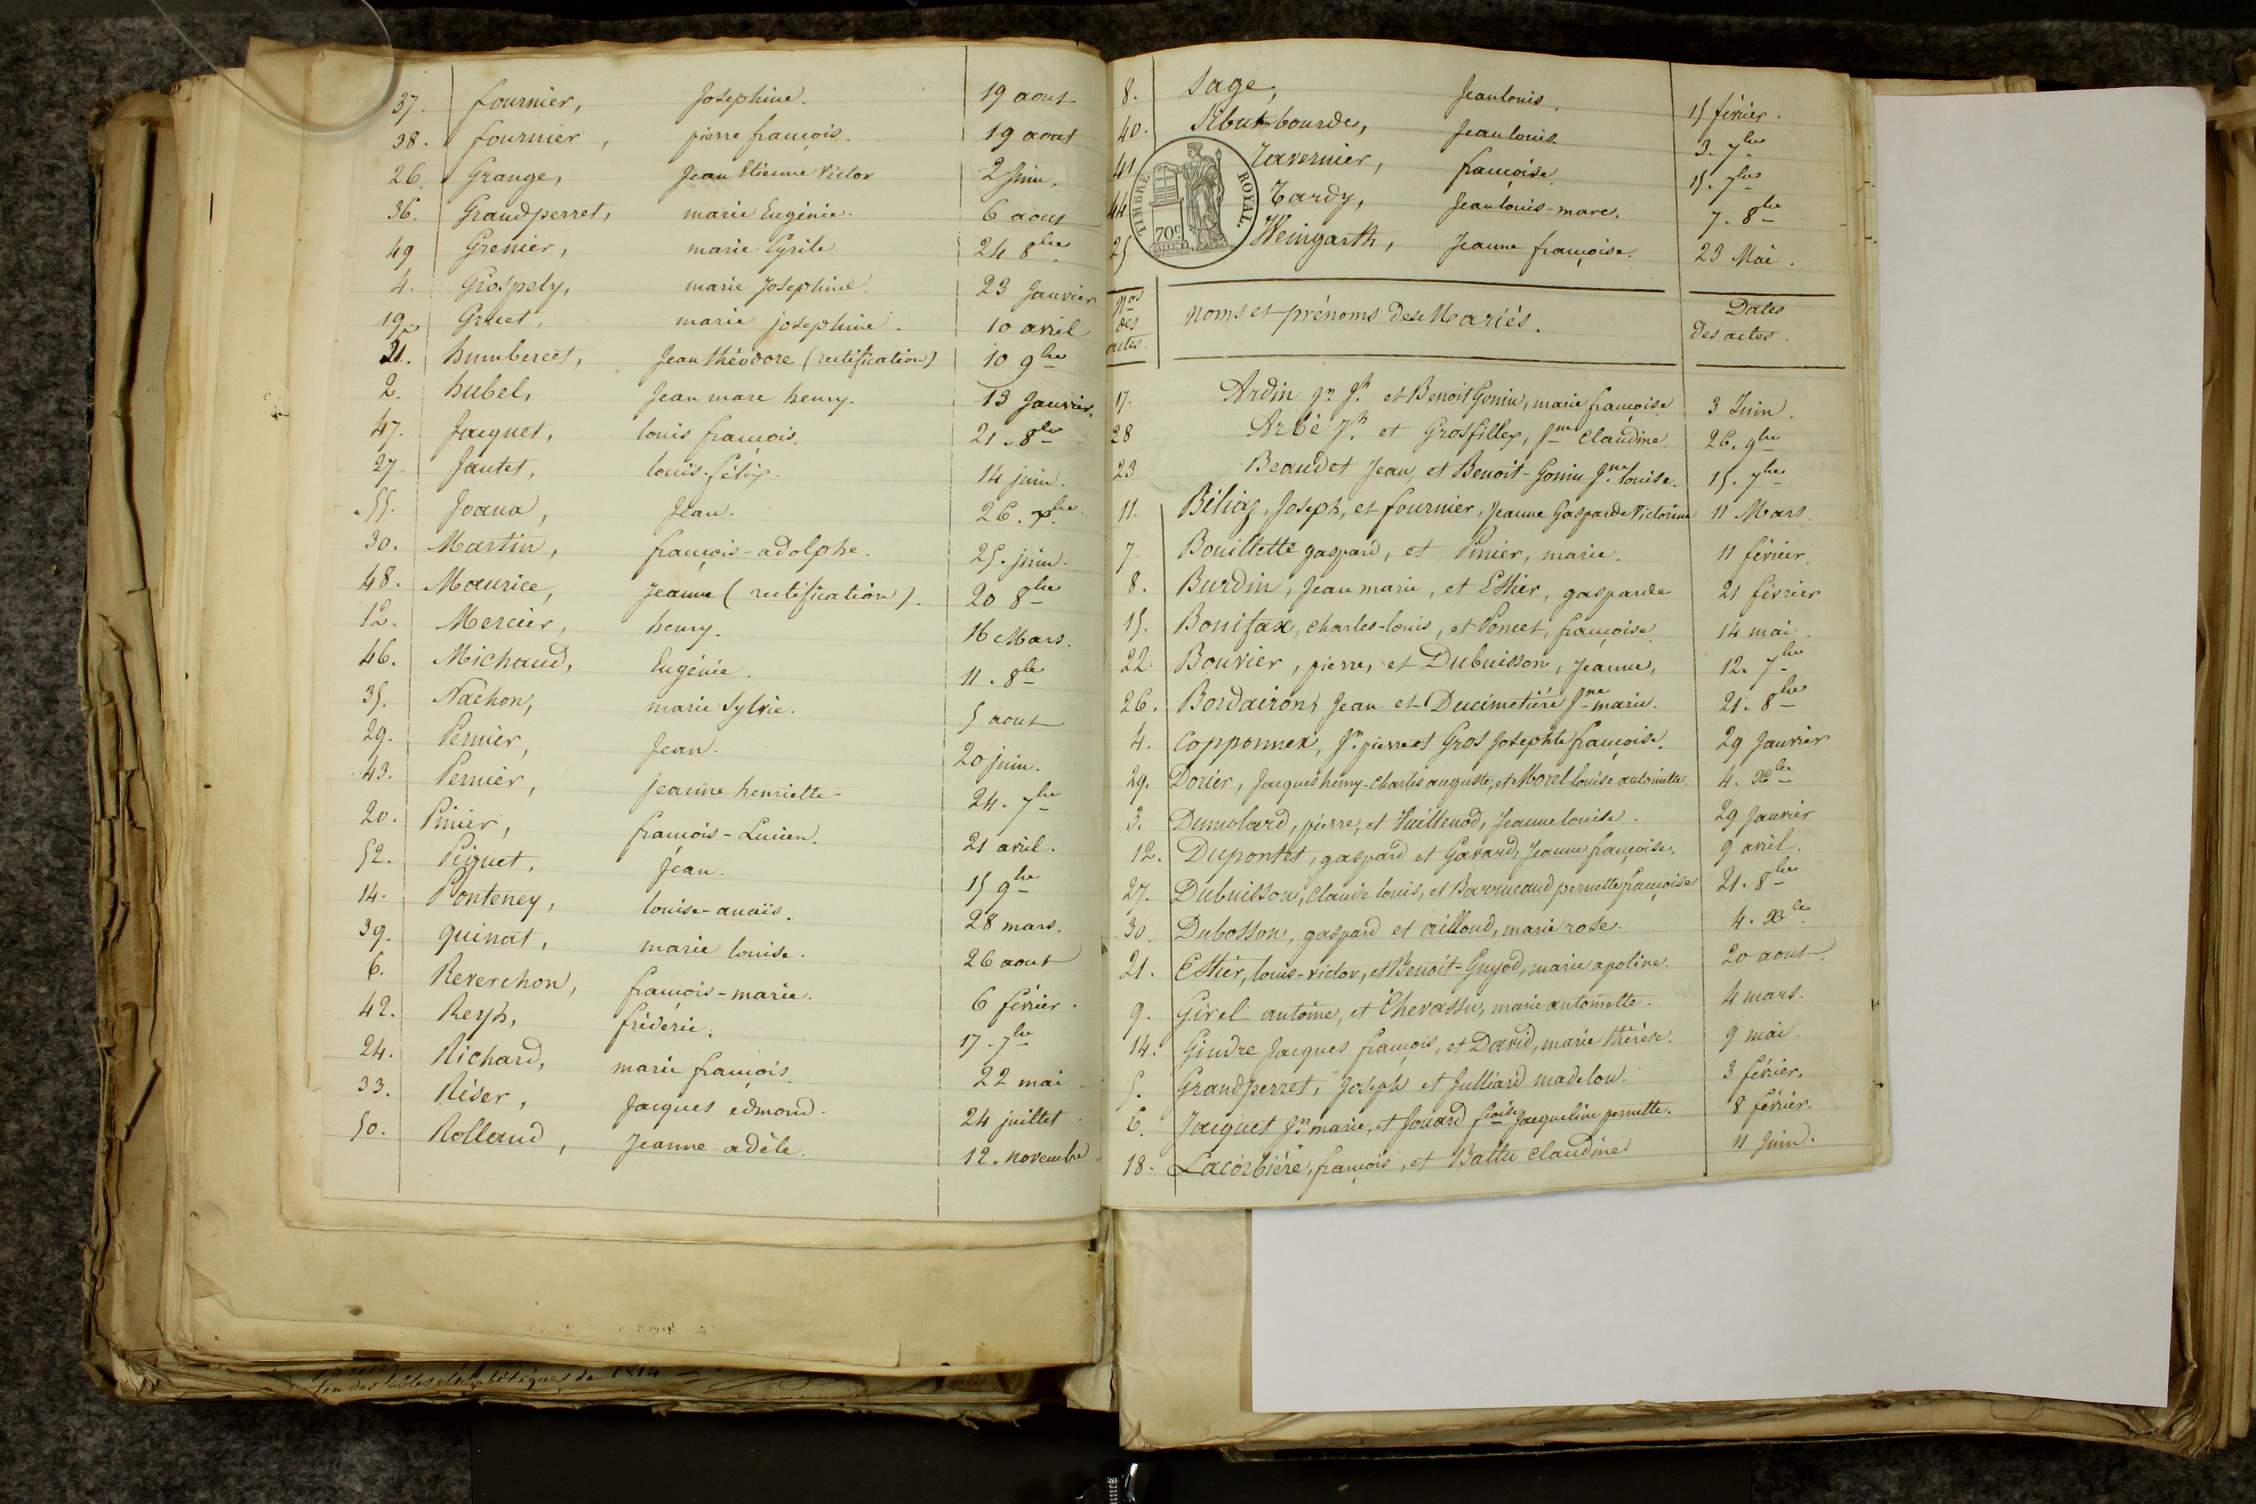 37. fournier, Josephine. 19 aout
38. fournier, pierre françois. 19 aout
26. Grange, Jean Etienne Victor 2 Juin.
36. Grandperret, marie Eugénie. 6 aout
49 Grenier, marie Cyrile 24 8bre
4. Grospely, marie Josephine. 23 Janvier
19 Gruet, marie josephine. 10 avril
21. humbercet, Jean théodore (rectification) 10 9bre
2. hubel, Jean marc henry. 13 Janvier.
47. Jacquet, louis françois. 21. 8bre
27. Jautet, louis-félix. 14 juin.
55. Joana, Jean. 26. xbre
30. Martin, françois-adolphe. 25. juin.
48. Maurice, Jeanne (rectification). 20 8bre
12. Mercier, henry. 16 Mars.
46. Michaud, Eugénie. 11. 8bre
35. Nachon, marie Sylvie. 5 aout
29. Pernier, Jean. 20 juin.
43. Pernier, jeanne henriette- 24. 7bre
20. Pinier, françois-Lucien. 21 avril.
52. Piguet, Jean. 15 9bre
14. Ponteney, louise-anaïs. 28 mars.
39. quinat, marie louise. 26 aout
6. Reverchon, françois-marie. 6 février.
42. Reyh, fréderic. 17. 7bre
24. Richard, marie françois. 22 mai
33. Réser, Jacques edmond. 24 juillet
50. Rolland, Jeanne adèle. 12. novembre
fin des tables alphabétiques de 1814
8. Sage, Jean louis. 15 février.
40. bourdes, Jean louis. 3. 7bre
41 Tavernier, françoise. 15. 7bre
44 Tardy, Jean louis-marc. 7. 8bre
25 Weingarth, Jeanne françoise. 23 Mai.
TIMBRE ROYAL
70c
Nos des actes. noms et prénoms des Mariés. Dates des actes.
17. Ardin Jn Jh et Benoit Gonin, marie françoise 3 Juin.
28 Arbé Jh et Grosfilley, Jne Claudine. 26. 9bre
23 Beaudet Jean, et Benoit-Gonin Jne louise. 15. 7bre
11. Béliaz, Joseph, et fournier, Jeanne Gasparde Victorine 11 Mars.
7. Bouillette gaspard, et Pinier, marie. 11 février.
8. Burdin, Jean marie, et Esthier, gasparde 21 février
15. Bonifax, Charles-louis, et Poncet, françoise 14 mai.
22. Bouvier, pierre, et Dubuisson, Jeanne, 12. 7bre
26. Bordairon, Jean et Ducimetière Jne marie. 21. 8bre
4. Copponnex, Jn pierre et Gros Josephte françoise. 29 Janvier
29. Dorier, Jacques henry-Charles auguste, et Morel louise antoinette. 4. Xbre
3. Dumolard, pierre, et Vuillenod, Jeanne louise. 29 Janvier
12. Dupontet, gaspard et Gavard, Jeanne françoise. 9 avril.
27. Dubuisson, Claude louis, et Barrucand pernette françoise 21. 8bre
30. Dubosson, gaspard et aillond, marie rose. 4. Xbre
21. Esthier, louis-victor, et Benoit-Guyod, marie apoline. 20 aout.
9. Girel antoine, et Chevassu, marie antoinette. 4 mars.
14. Gindre Jacques françois, et David, marie thérèse. 9 mai.
5. Grandperret, Joseph et Julliard madelon. 3 février.
6. Jacquet Jn marie, et Jouard froise Jacqueline pernette. 8 février.
18. Lacorbière, françois, et Battu Claudine 11 Juin.